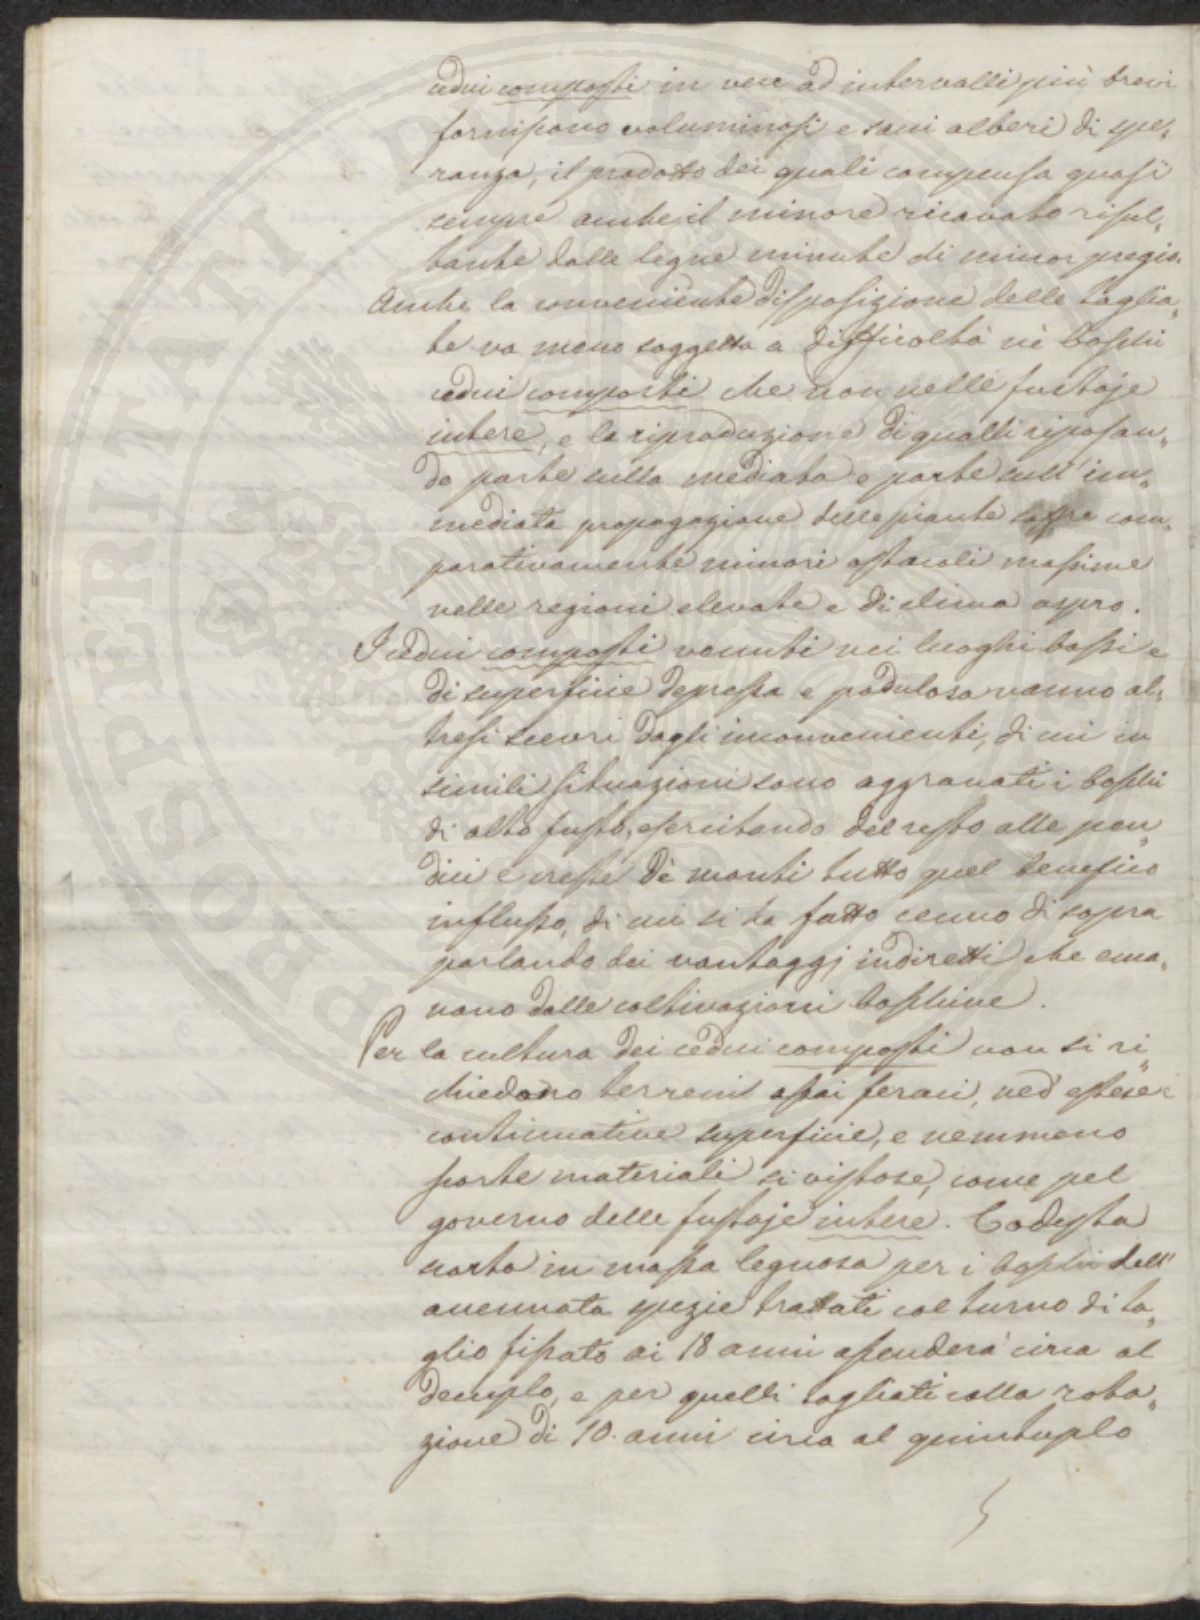 cedui composti in vece ad intervalli più brevi
forniscono voluminosi e sani alberi di spe„
ranza, il prodotto dei quali compensa quasi
sempre anche il minore ricavato risul„
tante dalle legne minute di minor pregio.
Anche la conveniente disposizione delle taglia„
te va meno soggetta a difficoltà nè boschi
cedui composti che non nelle fustaje
intere, e la riproduzione di quelli riposan„
do parte sulla mediata e parte sull'im„
mediata propagazione delle piante soffre com„
parativamente minori ostacoli massime
nelle regioni elevate e di clima aspro.
I cedui composti venuti nei luoghi bassi e
di superficie depressa e padulosa vanno al„
tresi scevri dagli inconvenienti, di cui in
simili situazioni sono aggravati i boschi
di alto fusto, esercitando del resto alle pen„
dici e creste dè monti tutto quel benefico
influsso, di cui si ha fatto cenno di sopra
parlando dei vantaggj indiretti che ema„
nano dalle coltivazioni boschive.
Per la cultura dei cedui composti non si ri„
chiedono terreni assai feraci, ned estese
continuative superficie, e nemmeno
scorte materiali si vistose, come pel
governo delle fustaje intere. Codesta
scorta in massa legnosa per i boschi dell'
accennata spezie trattati col turno di ta„
glio fissato ai 18 anni ascenderà circa al
decuplo, e per quelli tagliati colla rota„
zione di 10 anni circa al quintuplo
PROSPERITATI PUBLICAE